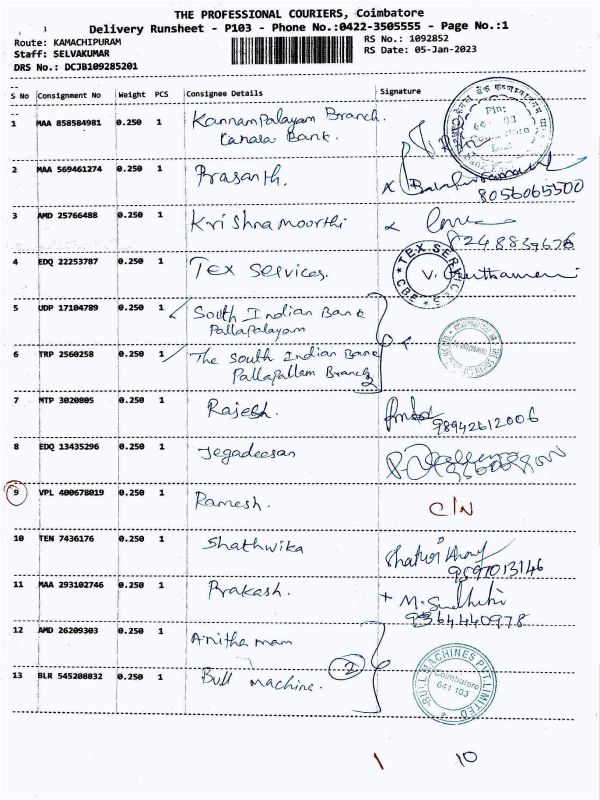 THE PROFESSIONAL COURIERS, Coimbatore
Delivery Runsheet - P103 - Phone No.:0422-3505555 - Page No.:1
Route: KAMACHIPURAM
RS No.: 1092852
Staff: SELVAKUMAR
RS Date: 05-Jan-2023
DRS No.: DCJB109285201
S No Consignment No Weight PCS Consignee Details Signature
1 MAA 858584981 0.250 1 Kannampalayam Branch
Canara Bank.
2 MAA 569461274 0.250 1 Prasanth.
8056065500
3 AMD 25766488 0.250 1 Krishnamoorthi
8248839676
4 EDQ 22253787 0.250 1 Tex Services.
TEX SERVICES
CBE
5 UDP 17104789 0.250 1 South Indian Bank
Pallapalayam
6 TRP 2560258 0.250 1 The South Indian Bank
Pallapallam Branch
7 MTP 3020805 0.250 1 Rajesh.
98942612006
8 EDQ 13435296 0.250 1 Jegadeesan
9 VPL 400678019 0.250 1 Ramesh. C/N
10 TEN 7436176 0.250 1 Shathwika
9597013146
11 MAA 293102746 0.250 1 Prakash.
9364440978
12 AMD 26209303 0.250 1 Anitha mam
13 BLR 545208832 0.250 1 Bull machine. 2
BULL MACHINES PVT.LIMITED
Coimbatore
641 103
1 10